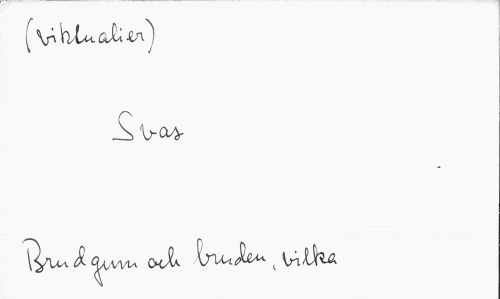 (viktualier)
Svas
Brudgum och bruden, vilka